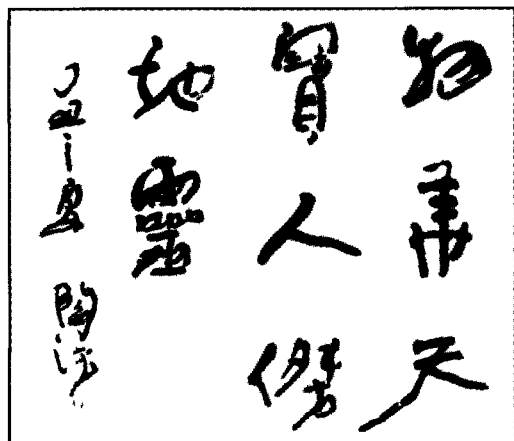 物華天
寶人傑
地靈
丁丑之夏 陶